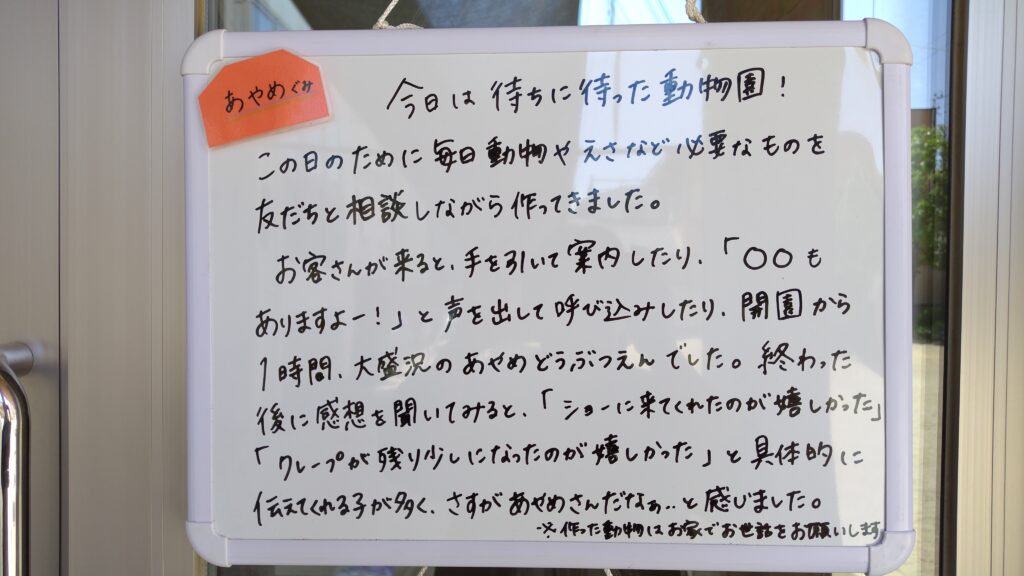 あやめぐみ
今日は待ちに待った動物園！
この日のために毎日動物やえさなど必要なものを
友だちと相談しながら作ってきました。
お客さんが来ると、手を引いて案内したり、「〇〇も
ありますよー！」と声を出して呼び込みしたり、開園から
1時間、大盛況のあやめどうぶつえんでした。終わった
後に感想を聞いてみると、「ショーに来てくれたのが嬉しかった」
「クレープが残り少しになったのが嬉しかった」と具体的に
伝えてくれる子が多く、さすがあやめさんだなぁ..と感じました。
※作った動物はお家でお世話をお願いします